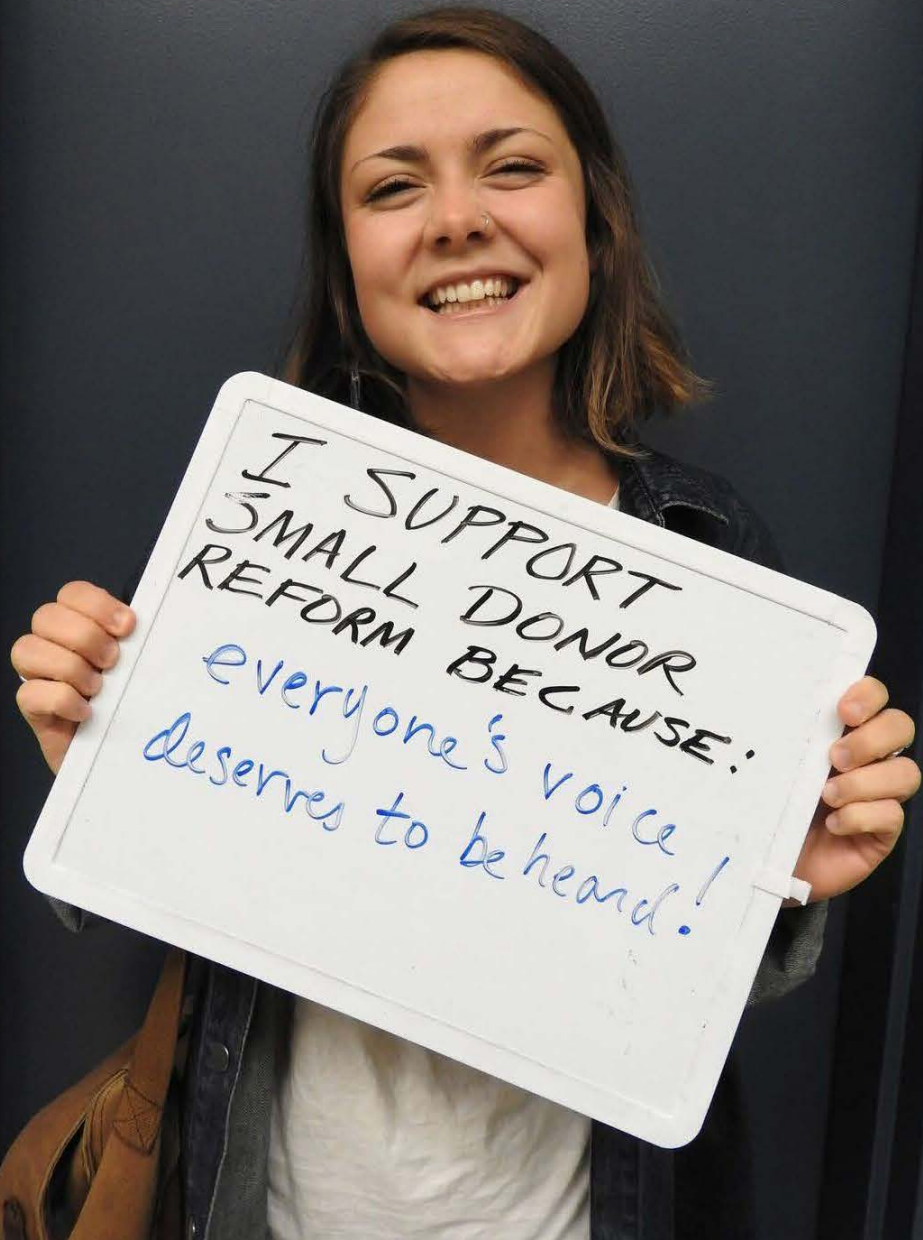 I SUPPORT
SMALL DONOR
REFORM BECAUSE:
everyone's voice
deserves to be heard!